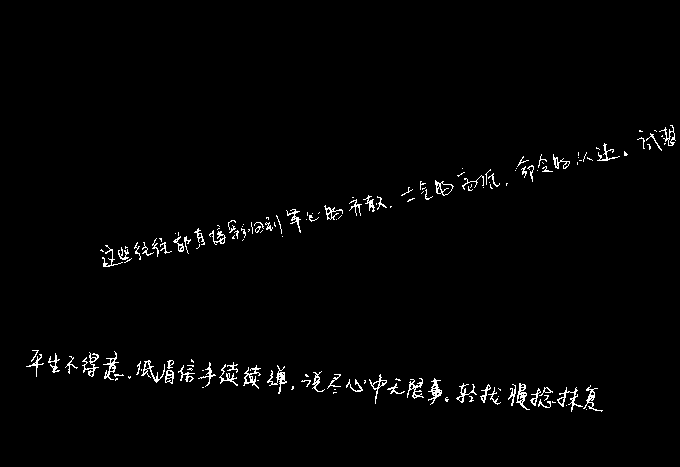 这些往往都直接影响到军心的齐散、士气的高低、命令的从违。试想
平生不得意、低眉信手续续弹，说尽心中无限事。轻拢慢捻抹复